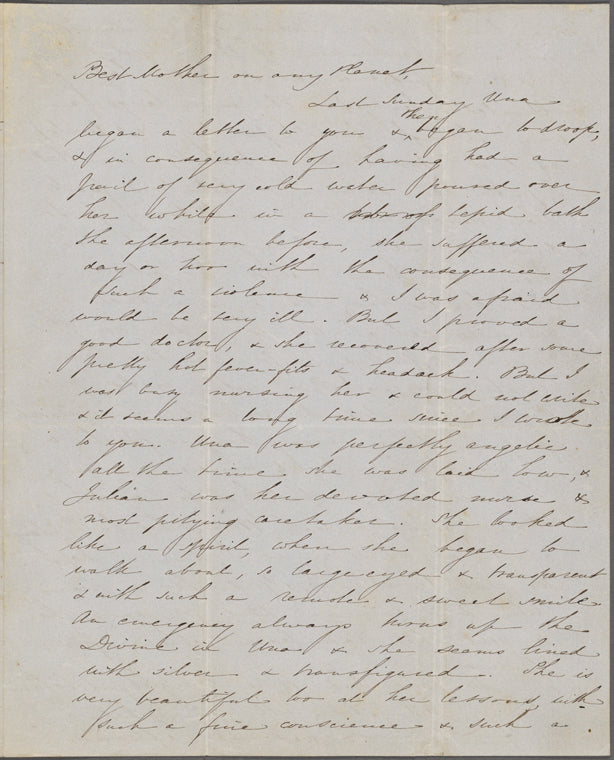 Best Mother on any Planet,
Last Sunday Una
began a letter to you & then began to droop,
& in consequence of having had a
pail of very cold water poured over
her while in a tepid bath
the afternoon before, she suffered a
day or two with the consequence of
such a violence & I was afraid
would be very ill. But I proved a
good doctor, & she recovered after some
pretty hot fever-fits & headach. But I
was busy nursing her & could not write
& it seems a long time since I wrote
to you. Una was perfectly angelic
all the time she was laid low, &
Julian was her devoted nurse &
most pitying caretaker. She looked
like a spirit, when she began to
walk about, so largeeyed & transparent
& with such a remote & sweet smile.
An emergency always turns up the
Divine in Una & she seems lined
with silver & transfigured. She is
very beautiful too at her lessons, with
such a fine conscience & such a